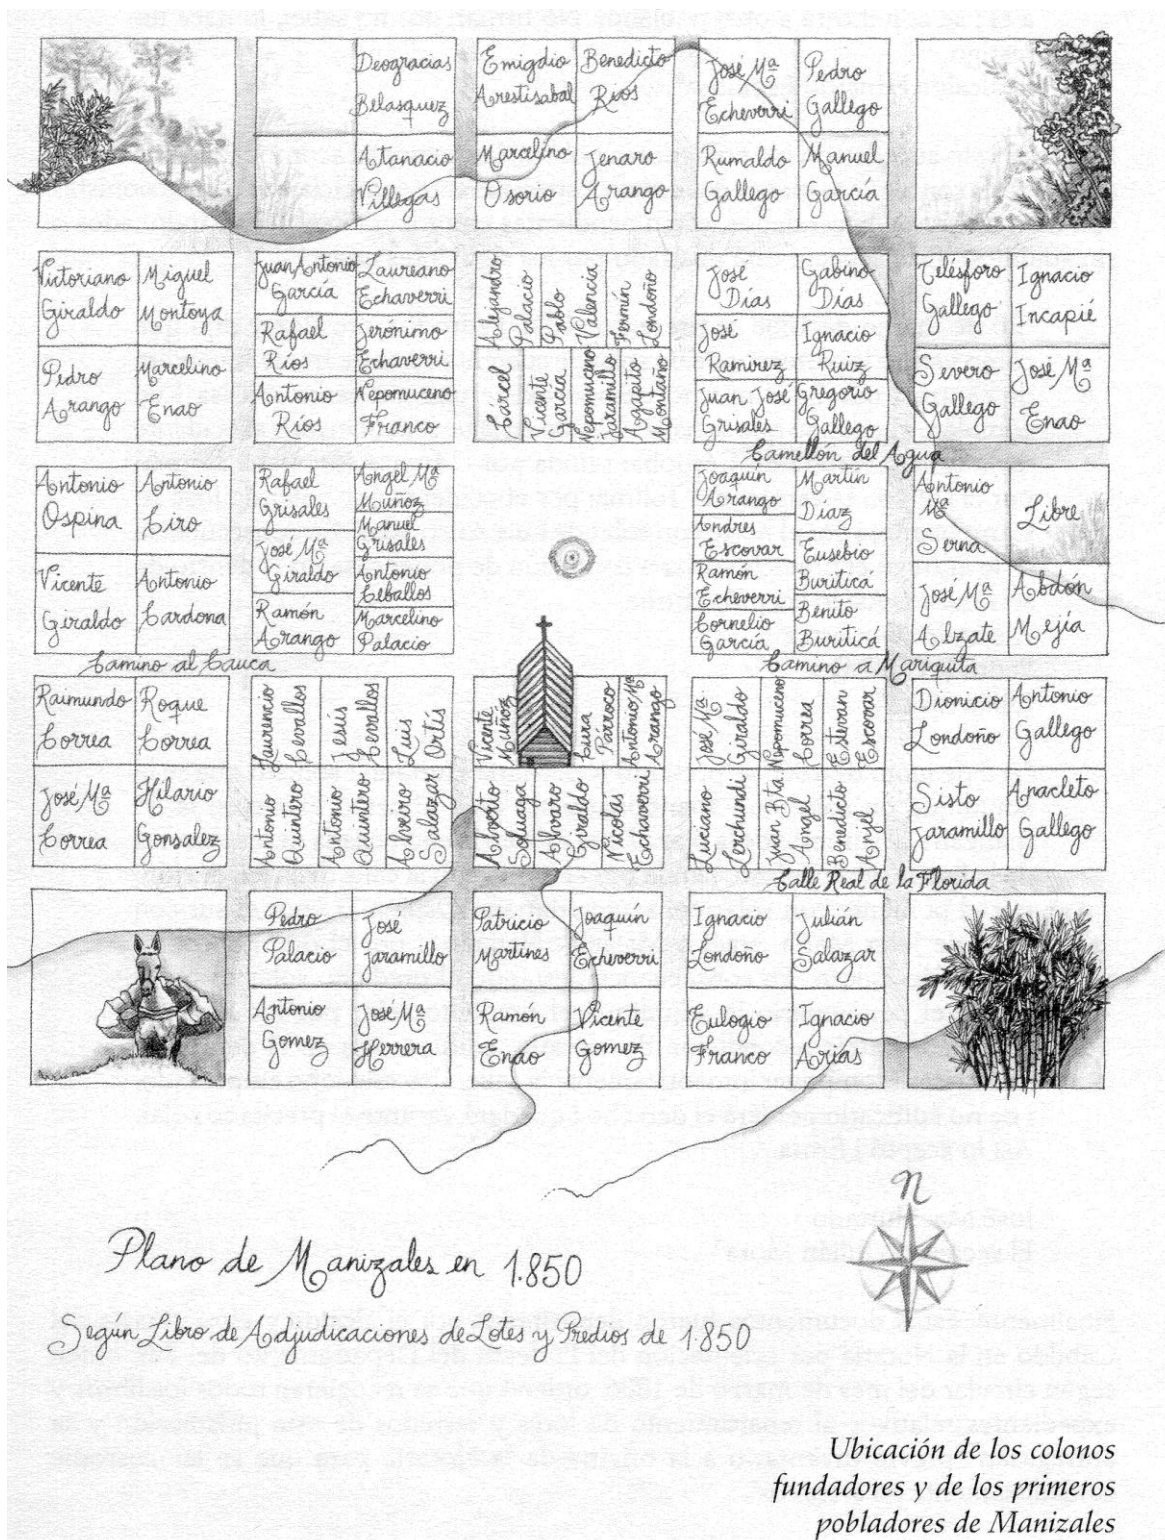 Deogracias
Belasquez
Emigdio
Arestisabal
Benedicto
Ríos
José Mª
Echeverri
Pedro
Gallego
Atanacio
Villegas
Marcelino
Osorio
Jenaro
Arango
Rumaldo
Gallego
Manuel
García
Victoriano
Giraldo
Miguel
Montoya
Pedro
Arango
Marcelino
Enao
Juan Antonio
García
Laureano
Echaverri
Rafael
Ríos
Jerónimo
Echaverri
Antonio
Ríos
Nepomuceno
Franco
Alejandro
Palacio
Pablo
Valencia
Fermín
Londoño
Cárcel
Vicente
García
Nepomuceno
Jaramillo
Agapito
Montaño
José
Días
Gabino
Días
José
Ramirez
Ignacio
Ruiz
Juan José
Grisales
Gregorio
Gallego
Telésforo
Gallego
Ignacio
Incapié
Severo
Gallego
José Mª
Enao
Camellón del Agua
Antonio
Ospina
Antonio
Ciro
Vicente
Giraldo
Antonio
Cardona
Rafael
Grisales
Angel Mª
Muñoz
Manuel
Grisales
José Mª
Giraldo
Antonio
Ceballos
Ramón
Arango
Marcelino
Palacio
Joaquín
Arango
Martín
Díaz
Andres
Escovar
Eusebio
Buriticá
Ramón
Echeverri
Cornelio
García
Benito
Buriticá
Antonio
Mª
Serna
Libre
José Mª
Alzate
Abdón
Mejía
Camino al Cauca
Camino a Mariquita
Raimundo
Correa
Roque
Correa
José Mª
Correa
Hilario
Gonsalez
Laurencio
Cevallos
Jesús
Cevallos
Luis
Ortís
Antonio
Quintero
Antonio
Quintero
Alveiro
Salazar
Vicente
Muñoz
Cura
Párroco
Antonio Mª
Arango
Alverto
Soluaga
Alvaro
Giraldo
Nicolás
Echaverri
José Mª
Giraldo
Nepomuceno
Correa
Estevan
Escovar
Luciano
Lerchundi
Juan Bta
Angel
Benedicto
Anjel
Dionicio
Londoño
Antonio
Gallego
Sisto
Jaramillo
Anacleto
Gallego
Calle Real de la Florida
Pedro
Palacio
José
Jaramillo
Antonio
Gomez
José Mª
Herrera
Patricio
Martines
Joaquín
Echeverri
Ramón
Enao
Vicente
Gomez
Ignacio
Londoño
Julián
Salazar
Eulogio
Franco
Ignacio
Arias
n
Plano de Manizales en 1.850
Según Libro de Adjudicaciones de Lotes y Predios de 1.850
Ubicación de los colonos
fundadores y de los primeros
pobladores de Manizales